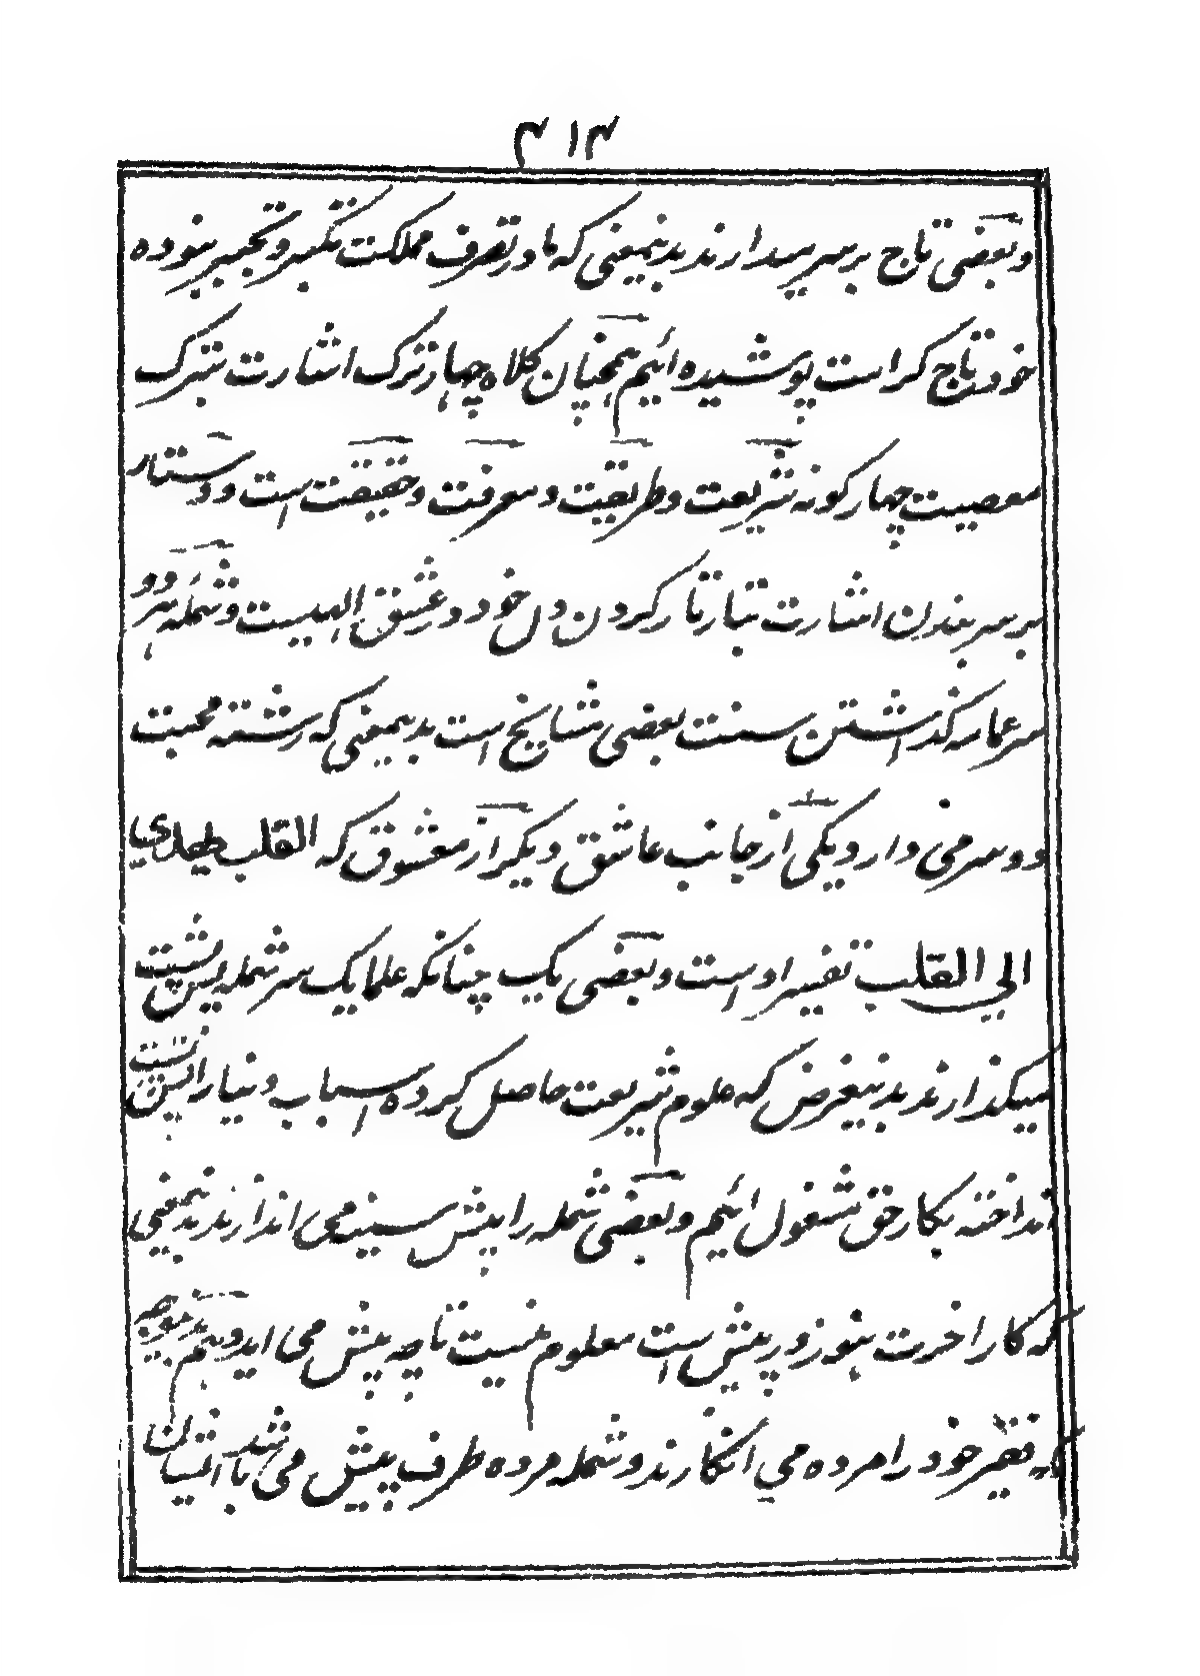 ۳۱۴
وبعضی تاج برسر میدارند بدینمعنی که ما در تصرف مملکت تکبر و تجبر بنوده
خود تاج کراست پوشیده ائیم همچنان کلاه چهار ترک اشارت بترک
معصیت چهار کونه شریعت وطریقت ومعرفت وحقیقت است ودستار
برسر بندیدن اشارت بتار تار کردن دل خود در عشق الهیست وشمله هر دو
سر عمامه گذاشتن سنت بعضی مشایخ است بدینمعنی که رشته محبت
دو سر می دارد یکی از جانب عاشق ودیکر از معشوق که القلب یهدی
الی القلب تفسیر اوست وبعضی یک چنانکه علما یک سر شمله پس پشت
میکذارند بدینغرض که علوم شریعت حاصل کرده اسباب دنیا را پس پشت
انداخته بکار حق مشغول ائیم وبعضی شمله را پیش سینه می اندازند بدینمعنی
که کار اخرت هنوز در پیش است معلوم نیست تا چه پیش می اید وبهم
که فقیر خود را مرده می انکارند وشمله مرده طرف پیش می باشد ایشان